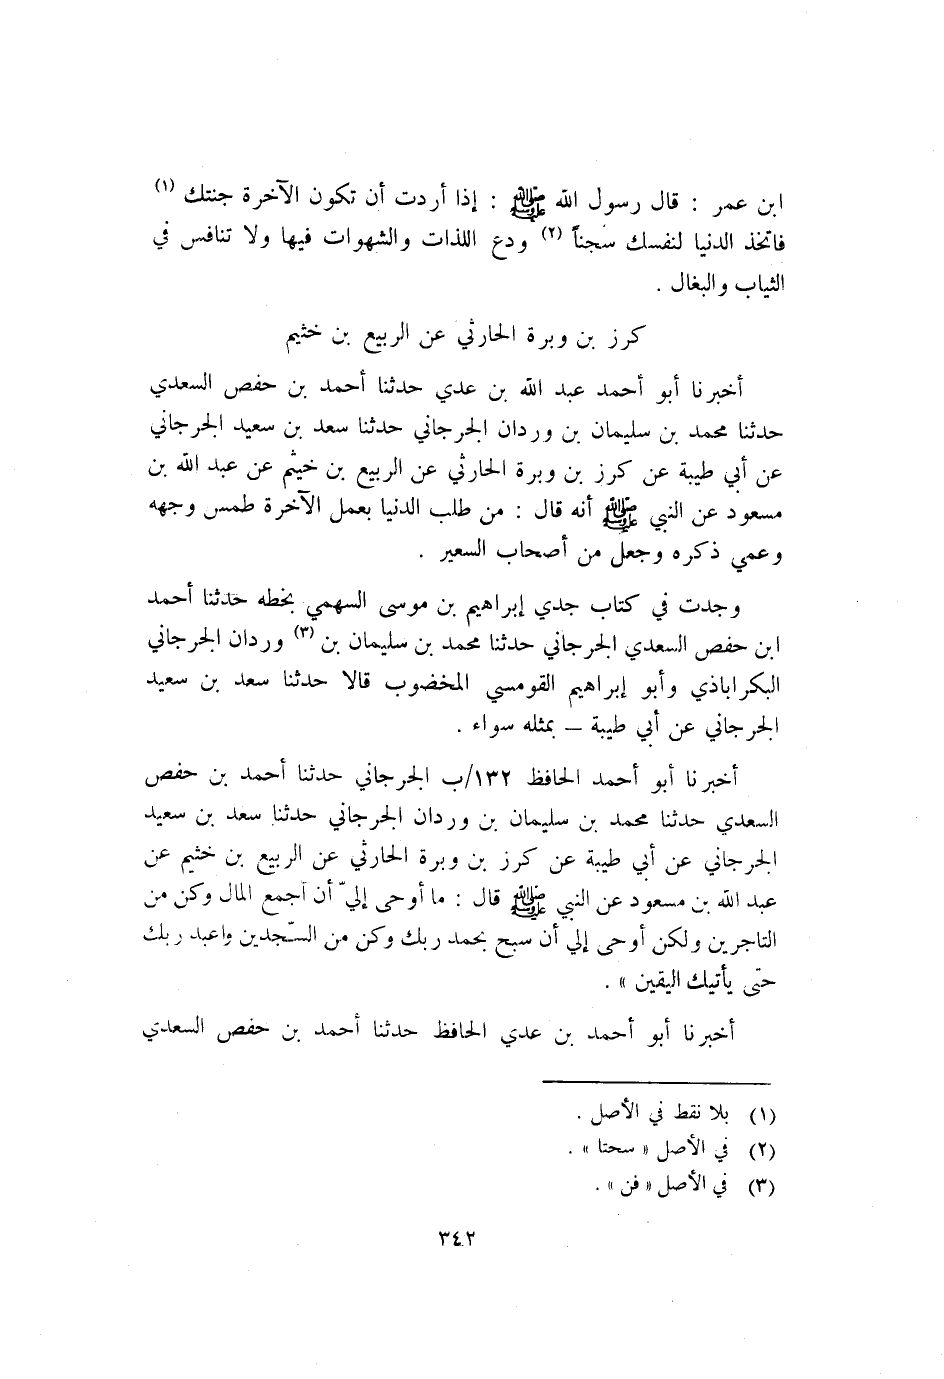 ابن عمر : قال رسول الله ﷺ : إذا أردت أن تكون الآخرة جنتك (١)
فاتخذ الدنيا لنفسك سجناً (٢) ودع اللذات والشهوات فيها ولا تنافس في
الثياب والبغال .
كرز بن وبرة الحارثي عن الربيع بن خثيم
أخبرنا أبو أحمد عبد الله بن عدي حدثنا أحمد بن حفص السعدي
حدثنا محمد بن سليمان بن وردان الجرجاني حدثنا سعد بن سعيد الجرجاني
عن أبي طيبة عن كرز بن وبرة الحارثي عن الربيع بن خيثم عن عبد الله بن
مسعود عن النبي ﷺ أنه قال : من طلب الدنيا بعمل الآخرة طمس وجهه
وعمي ذكره وجعل من أصحاب السعير .
وجدت في كتاب جدي إبراهيم بن موسى السهمي بخطه حدثنا أحمد
ابن حفص السعدي الجرجاني حدثنا محمد بن سليمان بن (٣) وردان الجرجاني
البكراباذي وأبو إبراهيم القومسي المخضوب قالا حدثنا سعد بن سعيد
الجرجاني عن أبي طيبة – بمثله سواء .
أخبرنا أبو أحمد الحافظ ١٣٢/ب الجرجاني حدثنا أحمد بن حفص
السعدي حدثنا محمد بن سليمان بن وردان الجرجاني حدثنا سعد بن سعيد
الجرجاني عن أبي طيبة عن كرز بن وبرة الحارثي عن الربيع بن خثيم عن
عبد الله بن مسعود عن النبي ﷺ قال : ما أوحى إليّ أن أجمع المال وكن من
التاجرين ولكن أوحى إلي أن سبح بحمد ربك وكن من السّجدين واعبد ربك
حتّى يأتيك اليقين » .
أخبرنا أبو أحمد بن عدي الحافظ حدثنا أحمد بن حفص السعدي
(١) بلا نقط في الأصل .
(٢) في الأصل « سحتا » .
(٣) في الأصل « فن » .
٣٤٢